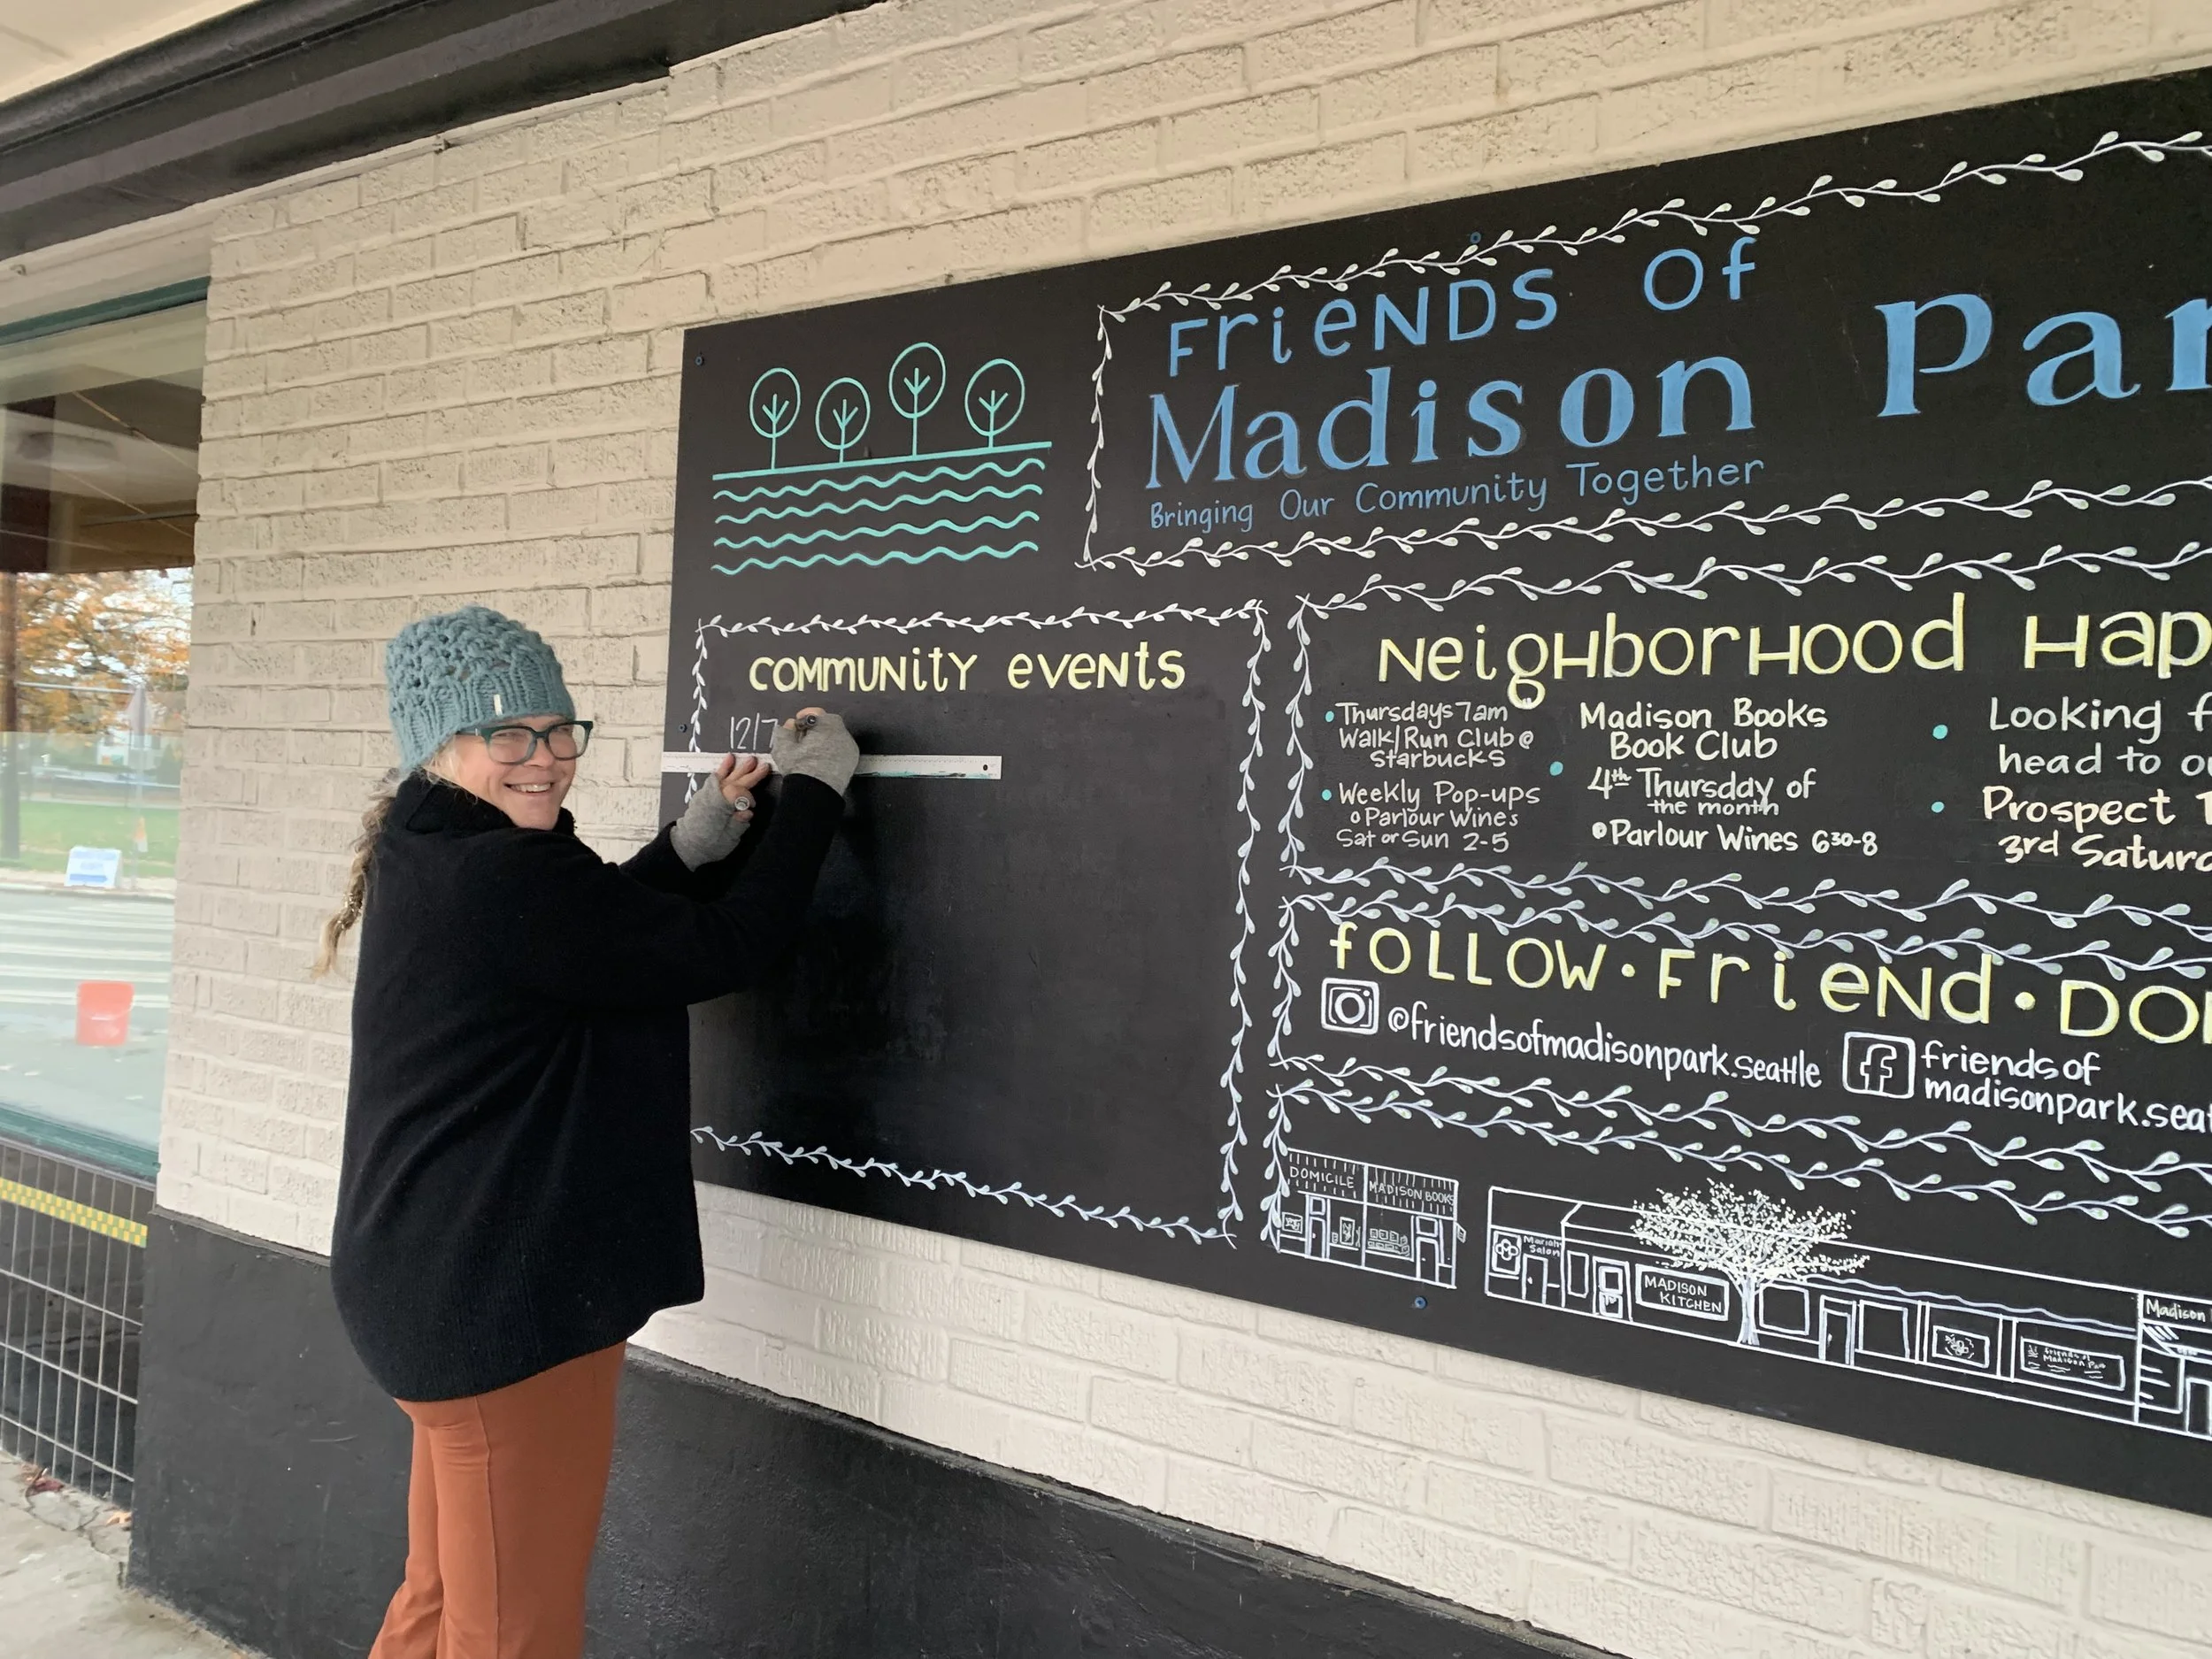 Friends of
Madison Par
Bringing Our Community Together
Community Events
12/7
Neighborhood Hap
Thursdays 7am
Walk/Run Club @
Starbucks
Weekly Pop-ups
@Parlour Wines
Sat or Sun 2-5
Madison Books
Book Club
4th Thursday of
the month
@Parlour Wines 630-8
Looking f
head to o
Prospect
3rd Satur
Follow · Friend · Do
@friendsofmadisonpark.seattle
friends of
madisonpark.sea
DOMICILE
MADISON BOOKS
Mariah
Salon
MADISON
KITCHEN
Madison
friends of
Madison Par